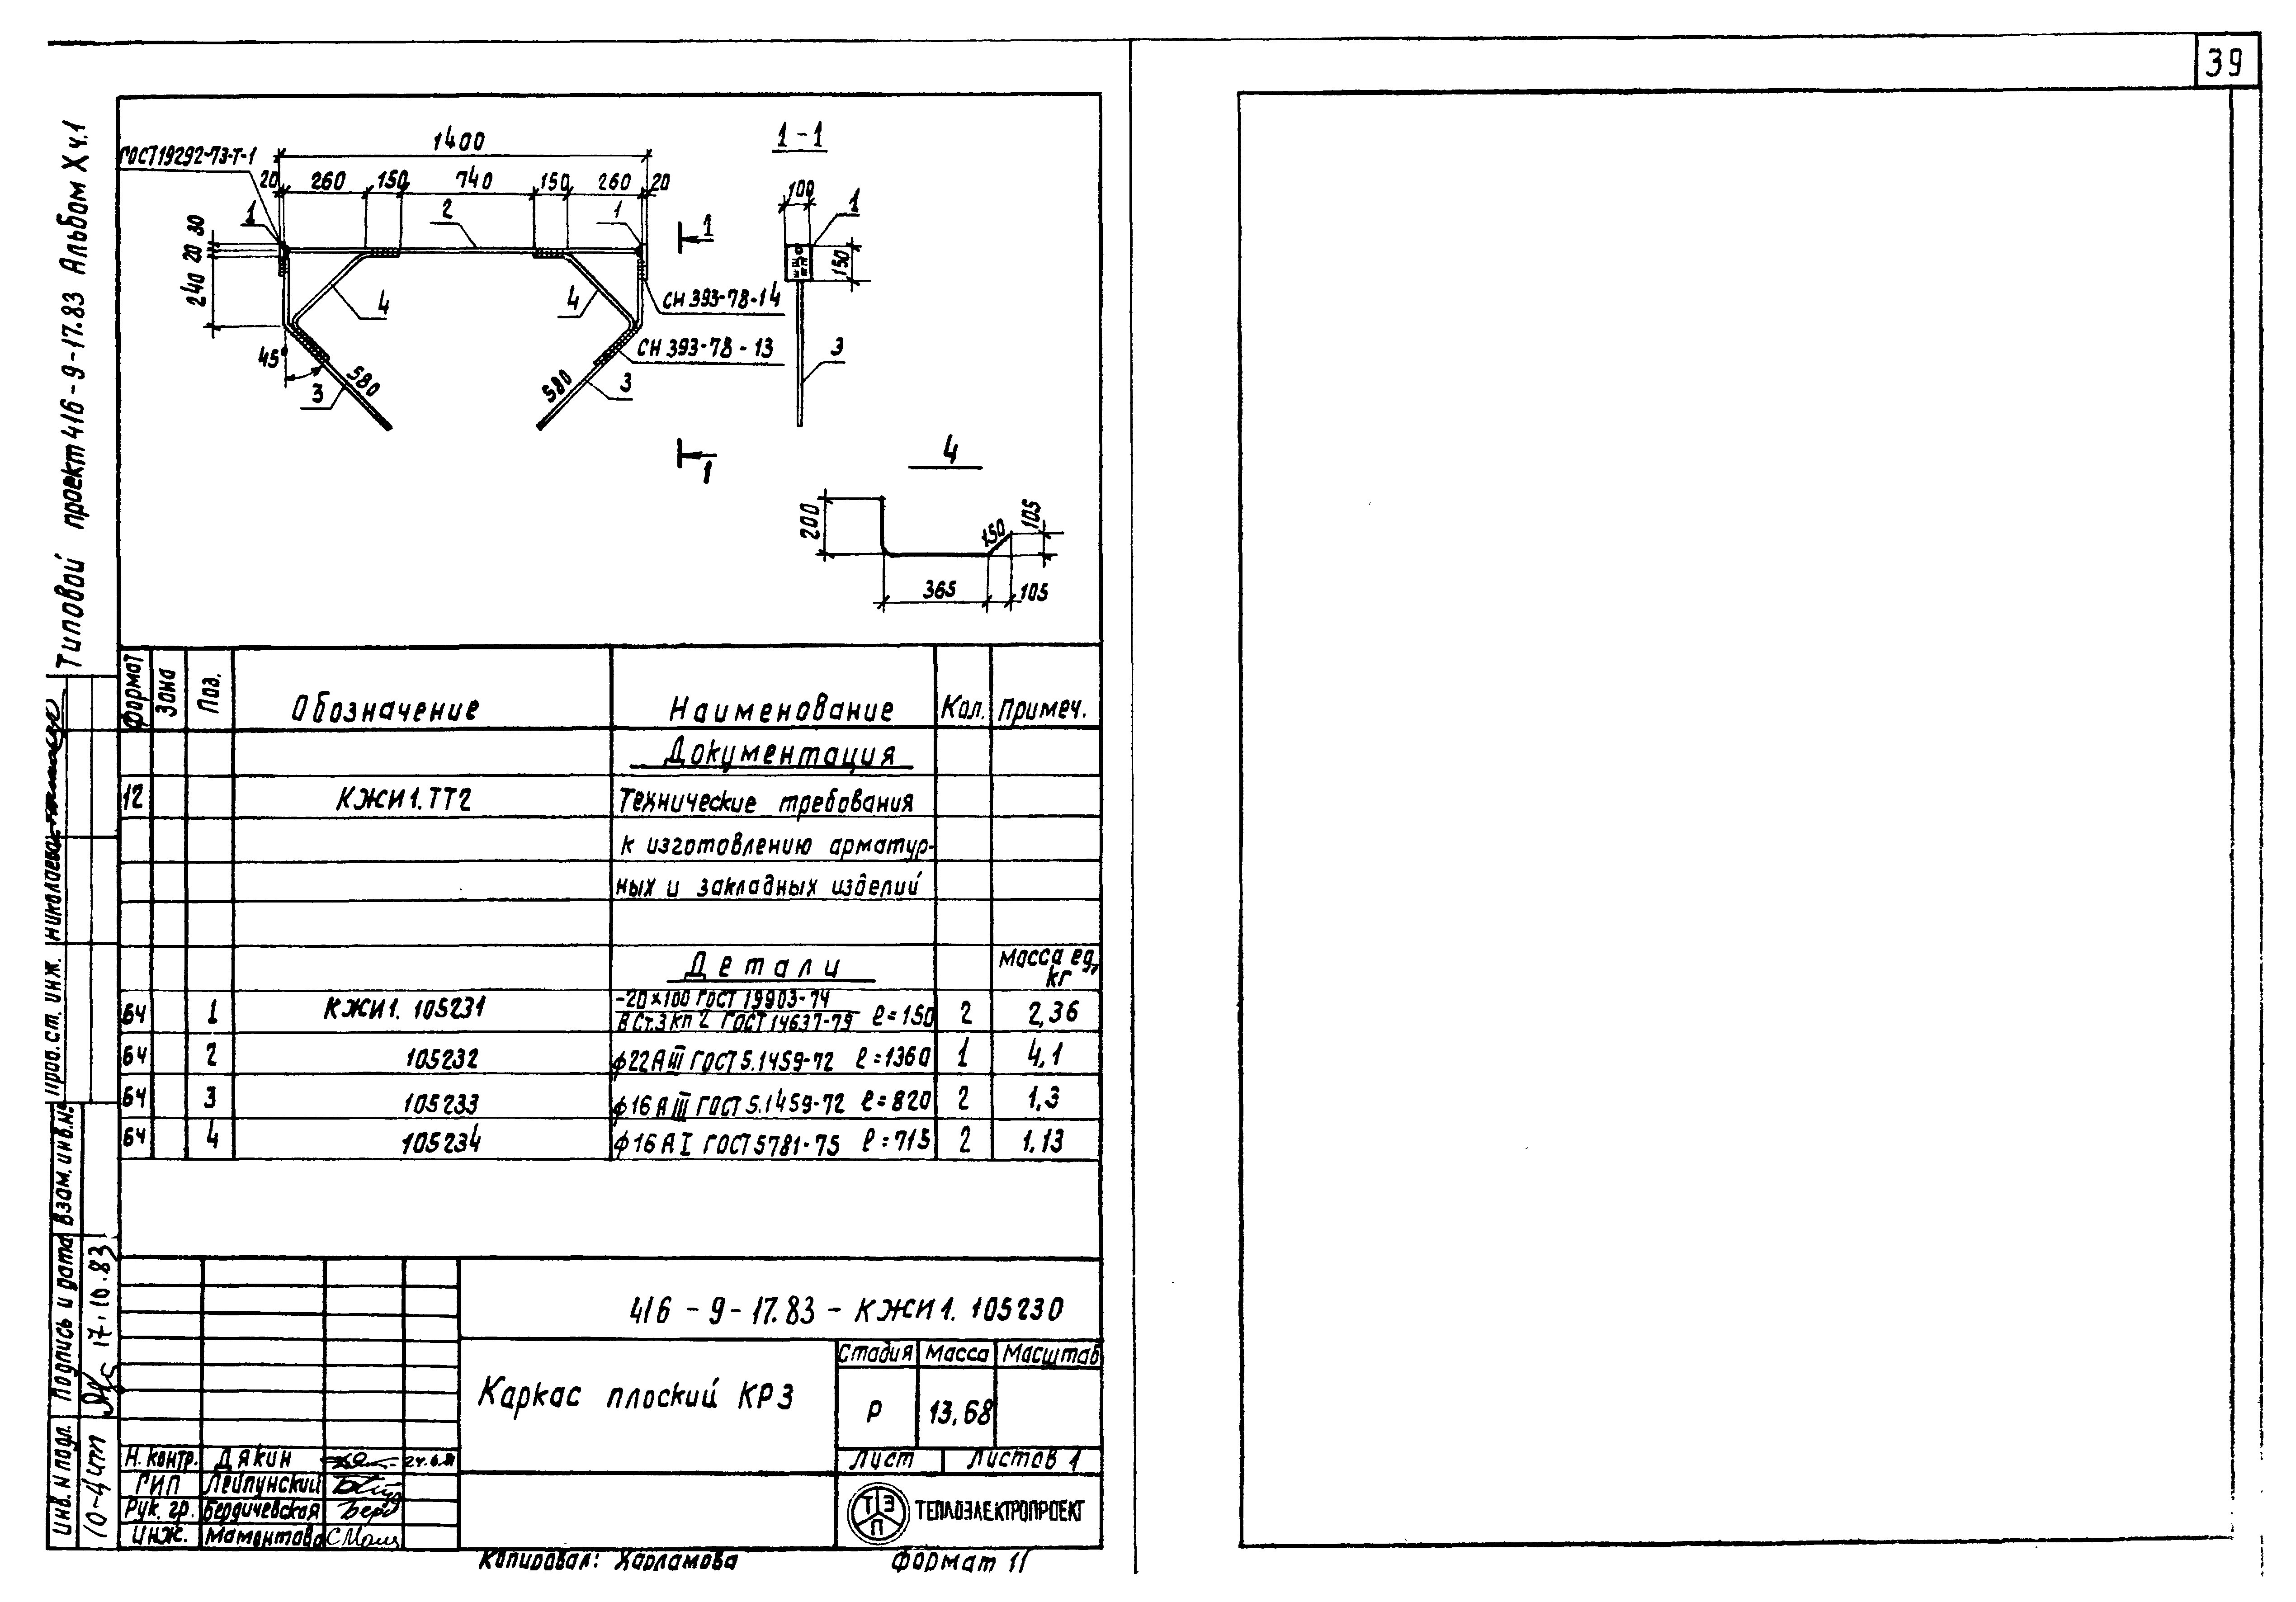 39
Типовой проект 416-9-17.83 Альбом X ч.1
ГОСТ19292-73-Т-1
1400
20 260 150 740 150 260 20
1 2 1
30
20
240
4 4
СН 393-78-14
СН 393-78-13
45°
580 580
3 3
1
1
1-1
100
1
150
3
4
200
150
105
365
105
Формат Зона Поз. Обозначение Наименование Кол. Примеч.
Документация
12 КЖИ1.ТТ2 Технические требования
к изготовлению арматур-
ных и закладных изделий
Детали Масса ед, кг
БЧ 1 КЖИ1. 105231 -20×100 ГОСТ 19903-74
ВСт.3кп2 ГОСТ14637-79 ℓ=150 2 2,36
БЧ 2 105232 ф22АIII ГОСТ 5.1459-72 ℓ=1360 1 4,1
БЧ 3 105233 ф16АIII ГОСТ 5.1459-72 ℓ=820 2 1,3
БЧ 4 105234 ф16АI ГОСТ5781-75 ℓ=715 2 1,13
416-9-17.83-КЖИ1. 105230
Каркас плоский КР3
Стадия Масса Масштаб
Р 13,68
Лист Листов 1
ТЭП
ТЕПЛОЭЛЕКТРОПРОЕКТ
Н. контр. Дякин
ГИП Лейпунский
Рук. гр. Бердичевская
Инж. Маментова
Копировал: Харламова Формат 11
Пров. ст. инж. Николаева
Взам. инв.№
Подпись и дата 17.10.83
Инв. N подл. 10-41тп